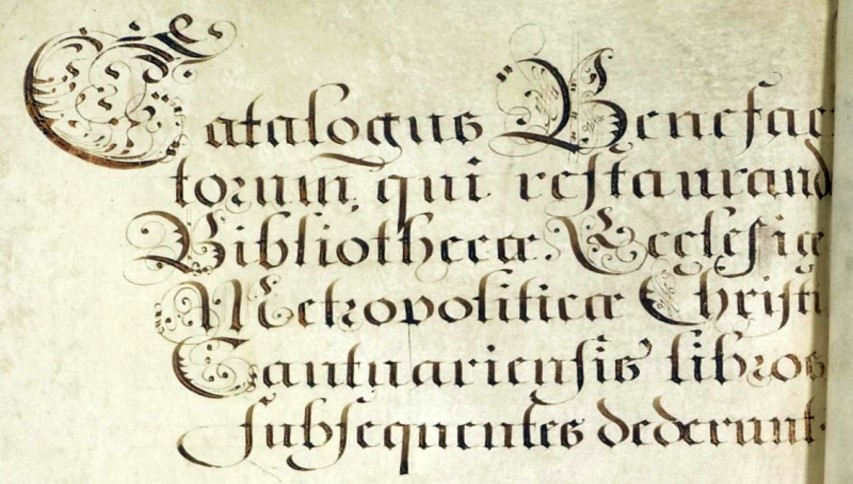 Catalogus Benefac
torum, qui restaurand
Bibliothecæ Ecclesiæ
Metropoliticæ Christi
Cantuariensis libros
subsequentes dederunt.